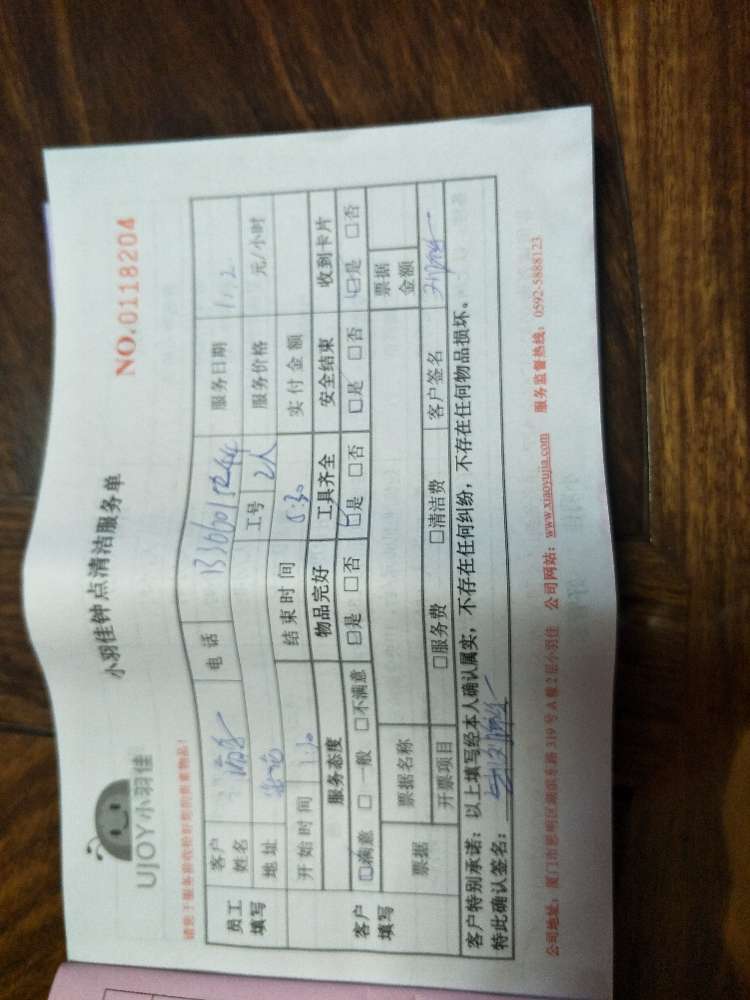 UJOY小羽佳
小羽佳钟点清洁服务单
NO.0118204
请您于服务前收检好您的贵重物品!
员工填写 客户姓名 电话 服务日期
地址 工号 2人 服务价格 元/小时
开始时间 1:30 结束时间 5:30 实付金额
客户填写 服务态度 物品完好 工具齐全 安全结束 收到卡片
□满意 □一般 □不满意 □是 □否 □是 □否 □是 □否 □是 □否
票据 票据名称 票据金额
开票项目 □服务费 □清洁费 客户签名
客户特别承诺：以上填写经本人确认属实，不存在任何纠纷，不存在任何物品损坏。
特此确认签名：
公司地址：厦门市思明区湖滨东路319号A幢2层小羽佳 公司网站：www.xiaoyujia.com 服务监督热线：0592-5888123